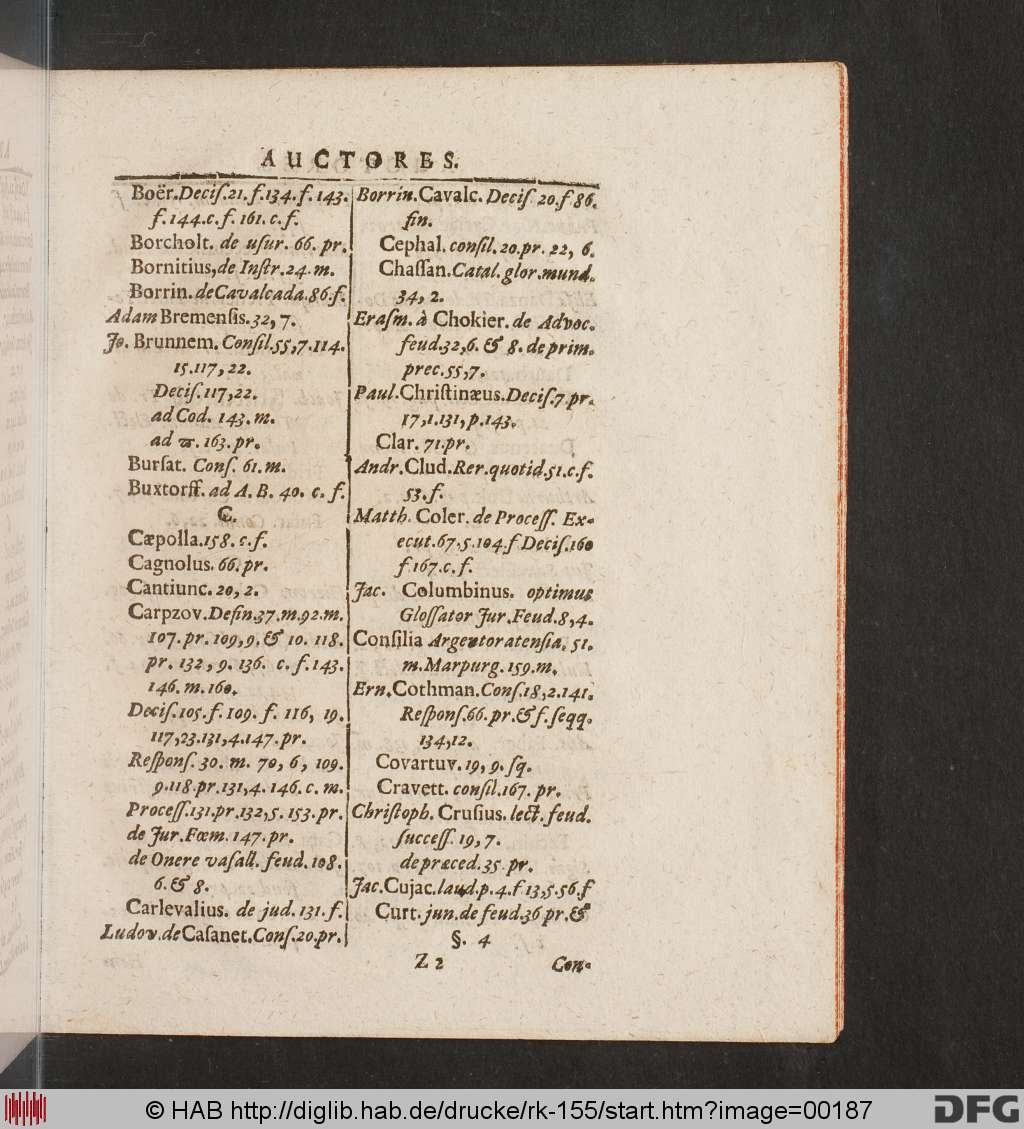 AUCTORES.
Boër. Deciſ. 21. f. 134. f. 143.
f. 144. c. f. 161. c. f.
Borcholt. de uſur. 66. pr.
Bornitius, de Inſtr. 24. m.
Borrin. de Cavalcada. 86. f.
Adam Bremenſis. 32, 7.
Jo. Brunnem. Conſil. 55, 7. 114.
15. 117, 22.
Deciſ. 117, 22.
ad Cod. 143. m.
ad π. 163. pr.
Burſat. Conſ. 61. m.
Buxtorff. ad A. B. 40. c. f.
C.
Cæpolla. 158. c. f.
Cagnolus. 66. pr.
Cantiunc. 20, 2.
Carpzov. Defin. 37. m. 92. m.
107. pr. 109, 9. & 10. 118.
pr. 132, 9. 136. c. f. 143.
146. m. 160.
Deciſ. 105. f. 109. f. 116, 19.
117, 23. 131, 4. 147. pr.
Reſponſ. 30. m. 70, 6, 109.
9. 118. pr. 131, 4. 146. c. m.
Proceſſ. 131. pr. 132, 5. 153. pr.
de Jur. Fœm. 147. pr.
de Onere vaſall. feud. 108.
6. & 8.
Carlevalius. de jud. 131. f.
Ludov. de Caſanet. Conſ. 20. pr.
Borrin. Cavalc. Deciſ. 20. f 86.
fin.
Cephal. conſil. 20. pr. 22, 6.
Chaſſan. Catal. glor. mund.
34, 2.
Eraſm. à Chokier. de Advoc.
feud. 32, 6. & 8. de prim.
prec. 55, 7.
Paul. Chriſtinæus. Deciſ. 7. pr.
17, 1. 131, p. 143.
Clar. 71. pr.
Andr. Clud. Rer. quotid. 51. c. f.
53. f.
Matth. Coler. de Proceſſ. Ex-
ecut. 67. 5. 104. f Deciſ. 160
f 167. c. f.
Jac. Columbinus. optimus
Gloſſator Jur. Feud. 8, 4.
Conſilia Argentoratenſia. 51.
m. Marpurg. 159. m.
Ern. Cothman. Conſ. 18, 2. 141.
Reſponſ. 66. pr. & f. ſeqq.
134, 12.
Covartuv. 19, 9. ſq.
Cravett. conſil. 167. pr.
Chriſtoph. Cruſius. lect. feud.
ſucceſſ. 19, 7.
de præced. 35. pr.
Jac. Cujac. laud. p. 4. f 13, 5. 56. f
Curt. jun. de feud. 36 pr. &
§. 4
Z 2 Con-
© HAB http://diglib.hab.de/drucke/rk-155/start.htm?image=00187
DFG